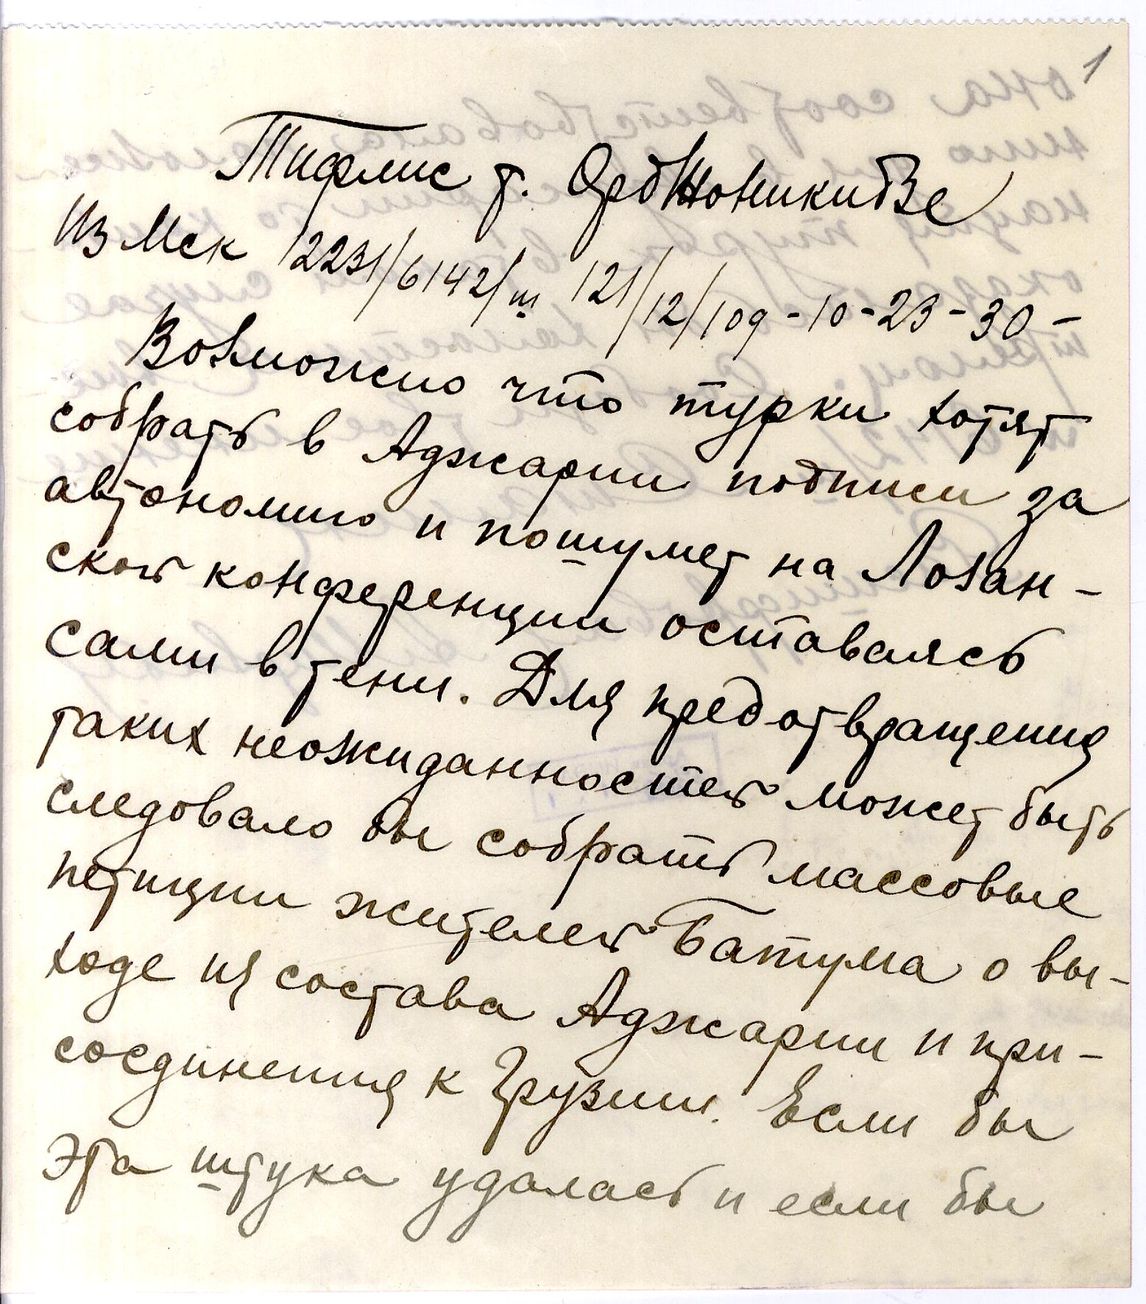 1
Тифлис т. Орджоникидзе
Из Мск 12231/6142/ш 121/12/109-10-23-30-
Возможно что турки хотят
собрать в Аджарии подписи за
автономию и пошумет на Лозан-
ской конференции оставаясь
сами в тени. Для предотвращения
таких неожиданностей может быть
следовало бы собрать массовые
петиции жителей Батума о вы-
ходе из состава Аджарии и при-
соединения к Грузии. Если бы
эта штука удалась и если бы